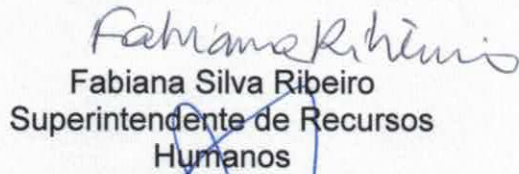 Fabiana Ribeiro
Fabiana Silva Ribeiro
Superintendente de Recursos
Humanos